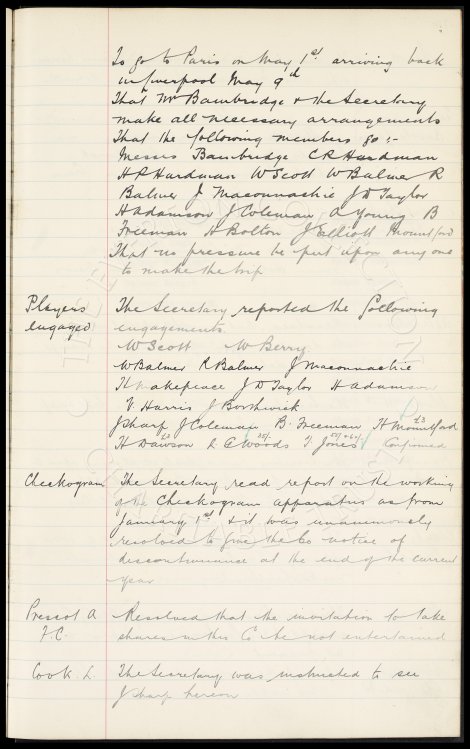 To go to Paris on May 1st arriving back
in Liverpool May 9th
That Mr Bambridge & the Secretary
make all necessary arrangements
That the following members go :-
Messrs Bambridge C R Hardman
H P Hardman W Scott W Balmer R
Balmer J Maconnachie J D Taylor
H Adamson J Coleman A Young B
Freeman H Bolton J Elliott Mountford
That no pressure be put upon any one
to make the trip
Players The Secretary reported the following
engaged engagements
W Scott W Berry
W Balmer R Balmer J Maconnachie
H Makepeace J D Taylor H Adamson
V. Harris J Borthwick
J Sharp J Coleman B. Freeman H Mountford £3
H Dawson £3 & C Woods 35/- T Jones Confirmed
Checkogram The Secretary read report on the working
of the Checkogram apparatus as from
January 1st & it was unanimously
resolved to give the Co notice of
discontinuance at the end of the current
year
Prescot A Resolved that the invitation to take
F.C. shares in this Co be not entertained
Cook. L The Secretary was instructed to see
J Sharp hereon